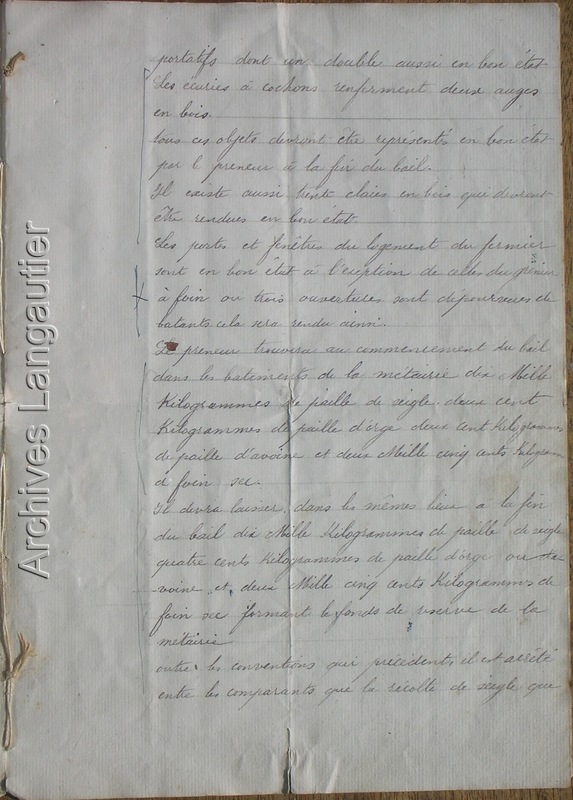 portatifs dont un double aussi en bon état
Les écuries à cochons renferment deux auges
en bois.
tous ces objets devront être représentés en bon état
par le preneur à la fin du bail.
Il existe aussi trente claies en bois que devront
être rendues en bon état.
Les portes et fenêtres du logement du fermier
sont en bon état à l'exeption de celles du grenier
à foin ou trois ouvertures sont dépourvues de
batants cela sera rendu ainsi.
Le preneur trouvera au commencement du bail
dans les batements de la métairie dix Mille
Kilogrammes de paille de seigle deux cent
Kilogrammes de paille d'orge deux cent Kilogrammes
de paille d'avoine et deux Mille cinq cents Kilogram
d foin sec.
Il devra laisser dans les mêmes lieux à la fin
du bail dix Mille Kilogrammes de paille de seigle
quatre cents Kilogrammes de paille d'orge ou d'a
-voine et deux Mille cinq cents Kilogramms de
foin sec formant le fonds de réserve de la
métairie
outre les conventions qui précédents il est arrêté
entre les comparants que la récolte de seigle que
Archives Langautier